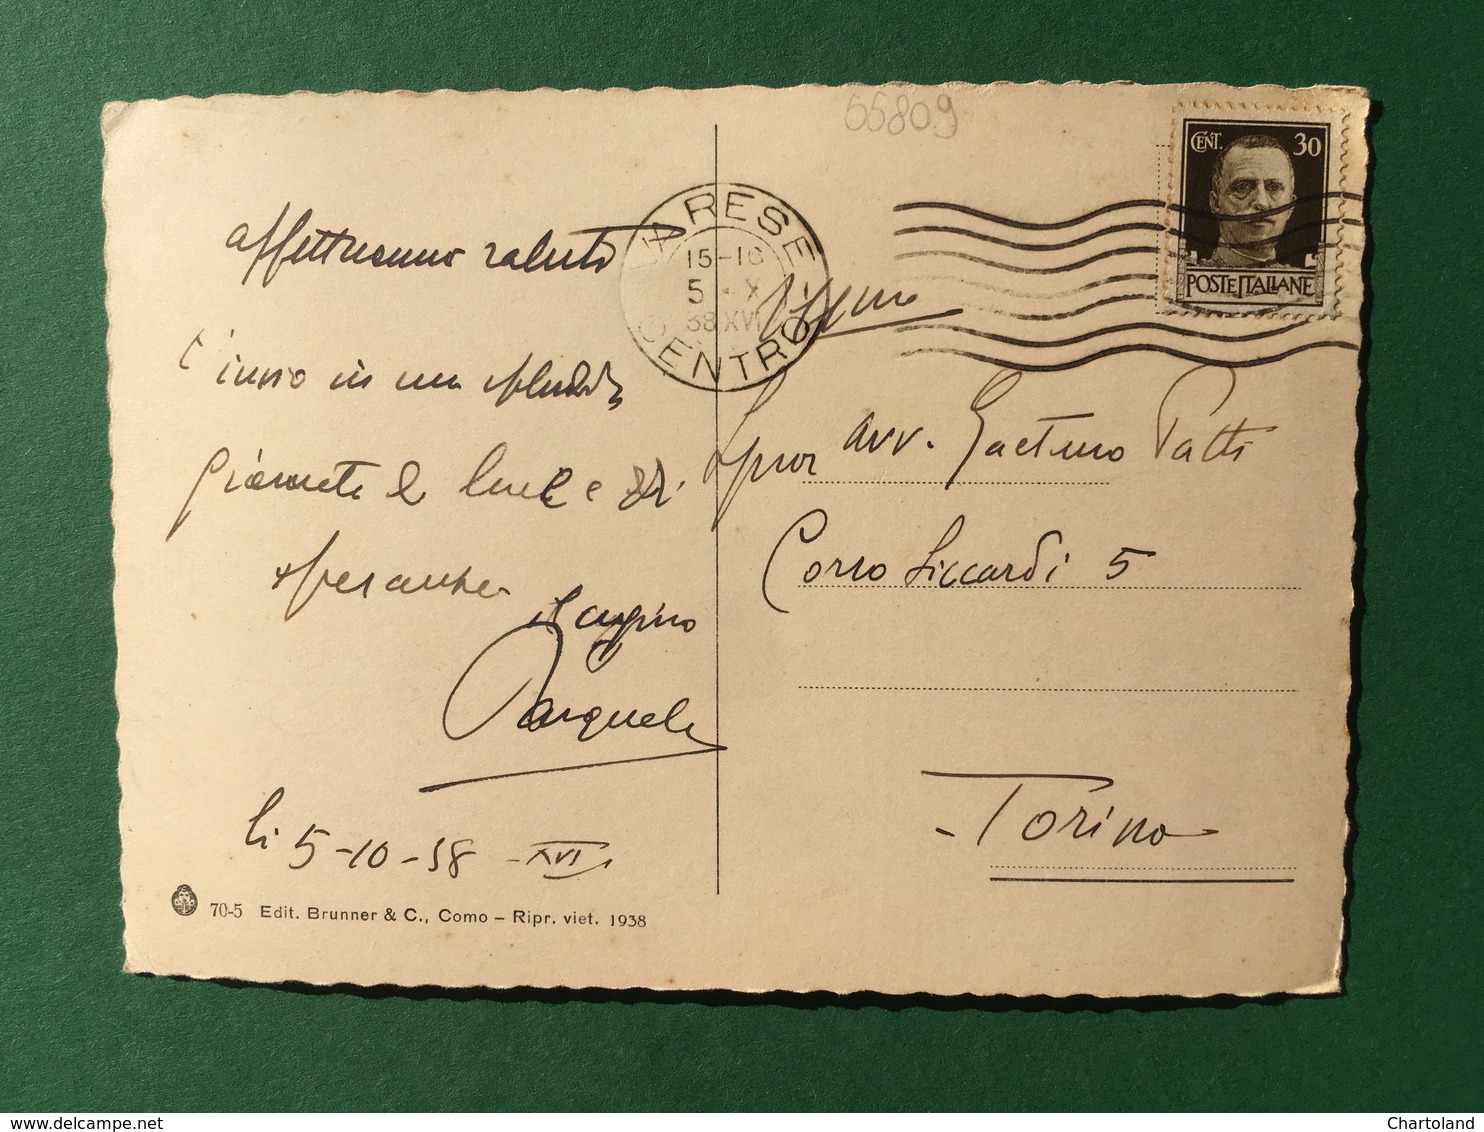 55809
CENT. 30
POSTE ITALIANE
VARESE
15-16
5 - X
38 XVI
CENTRO
affettuoso saluto
t'invio in un splendida
giornata di luce e di
speranze
il cugino
Pasquale
li 5-10-38 - XVI
Avv. Gaetano Patti
Corso Siccardi 5
- Torino
70-5 Edit. Brunner & C., Como - Ripr. viet. 1938
Chartoland